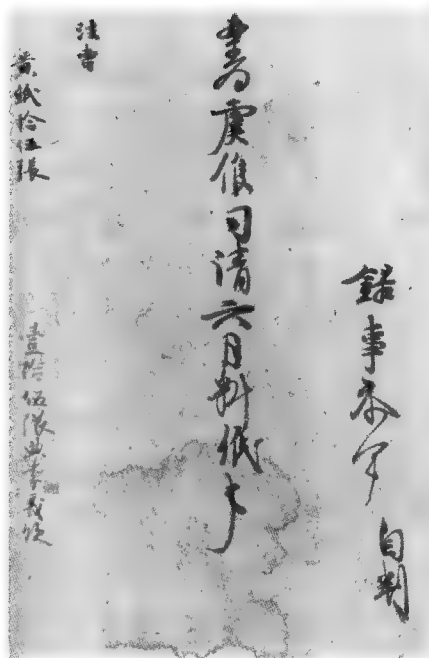 錄事參軍 自判
案為虞候司請六月料紙事
法曹
黃紙拾伍張 壹拾伍張典李義領